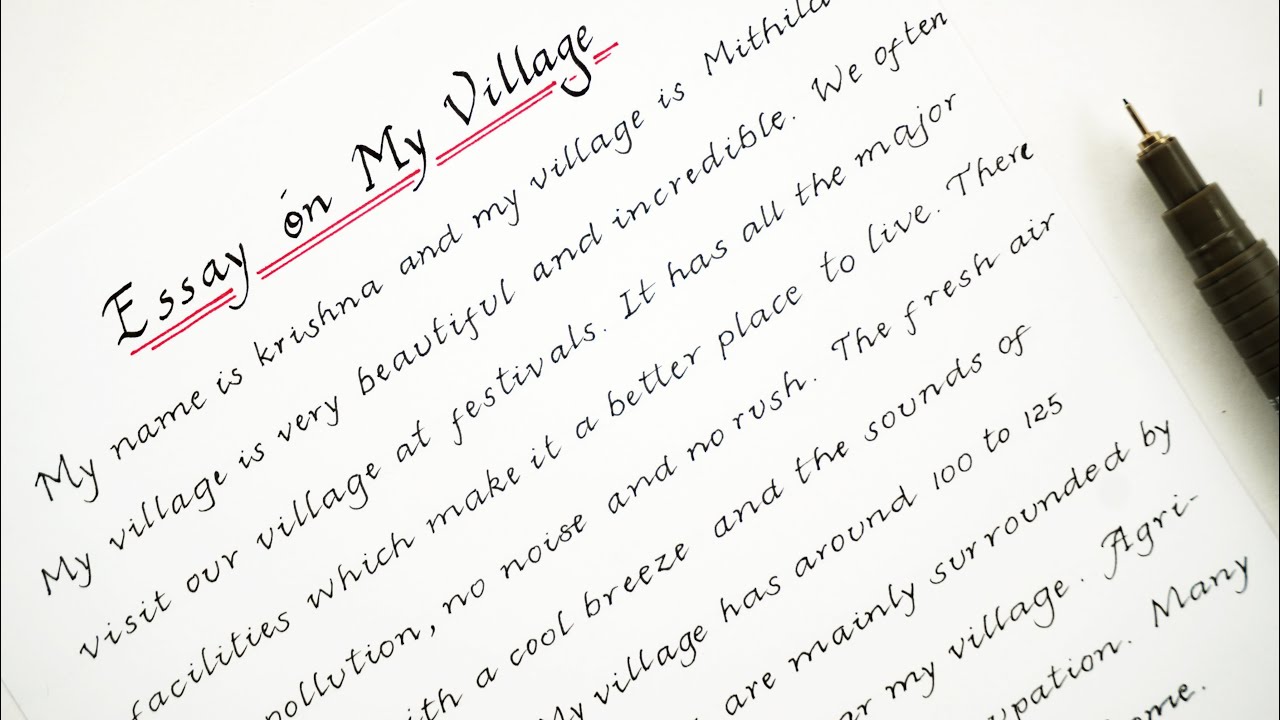 Essay on My Village
My name is krishna and my village is Mithila
My village is very beautiful and incredible. We often
visit our village at festivals. It has all the major
facilities which make it a better place to live. There
pollution, no noise and no rush. The fresh air
with a cool breeze and the sounds of
My village has around 100 to 125
are mainly surrounded by
my village. Agri-
Many